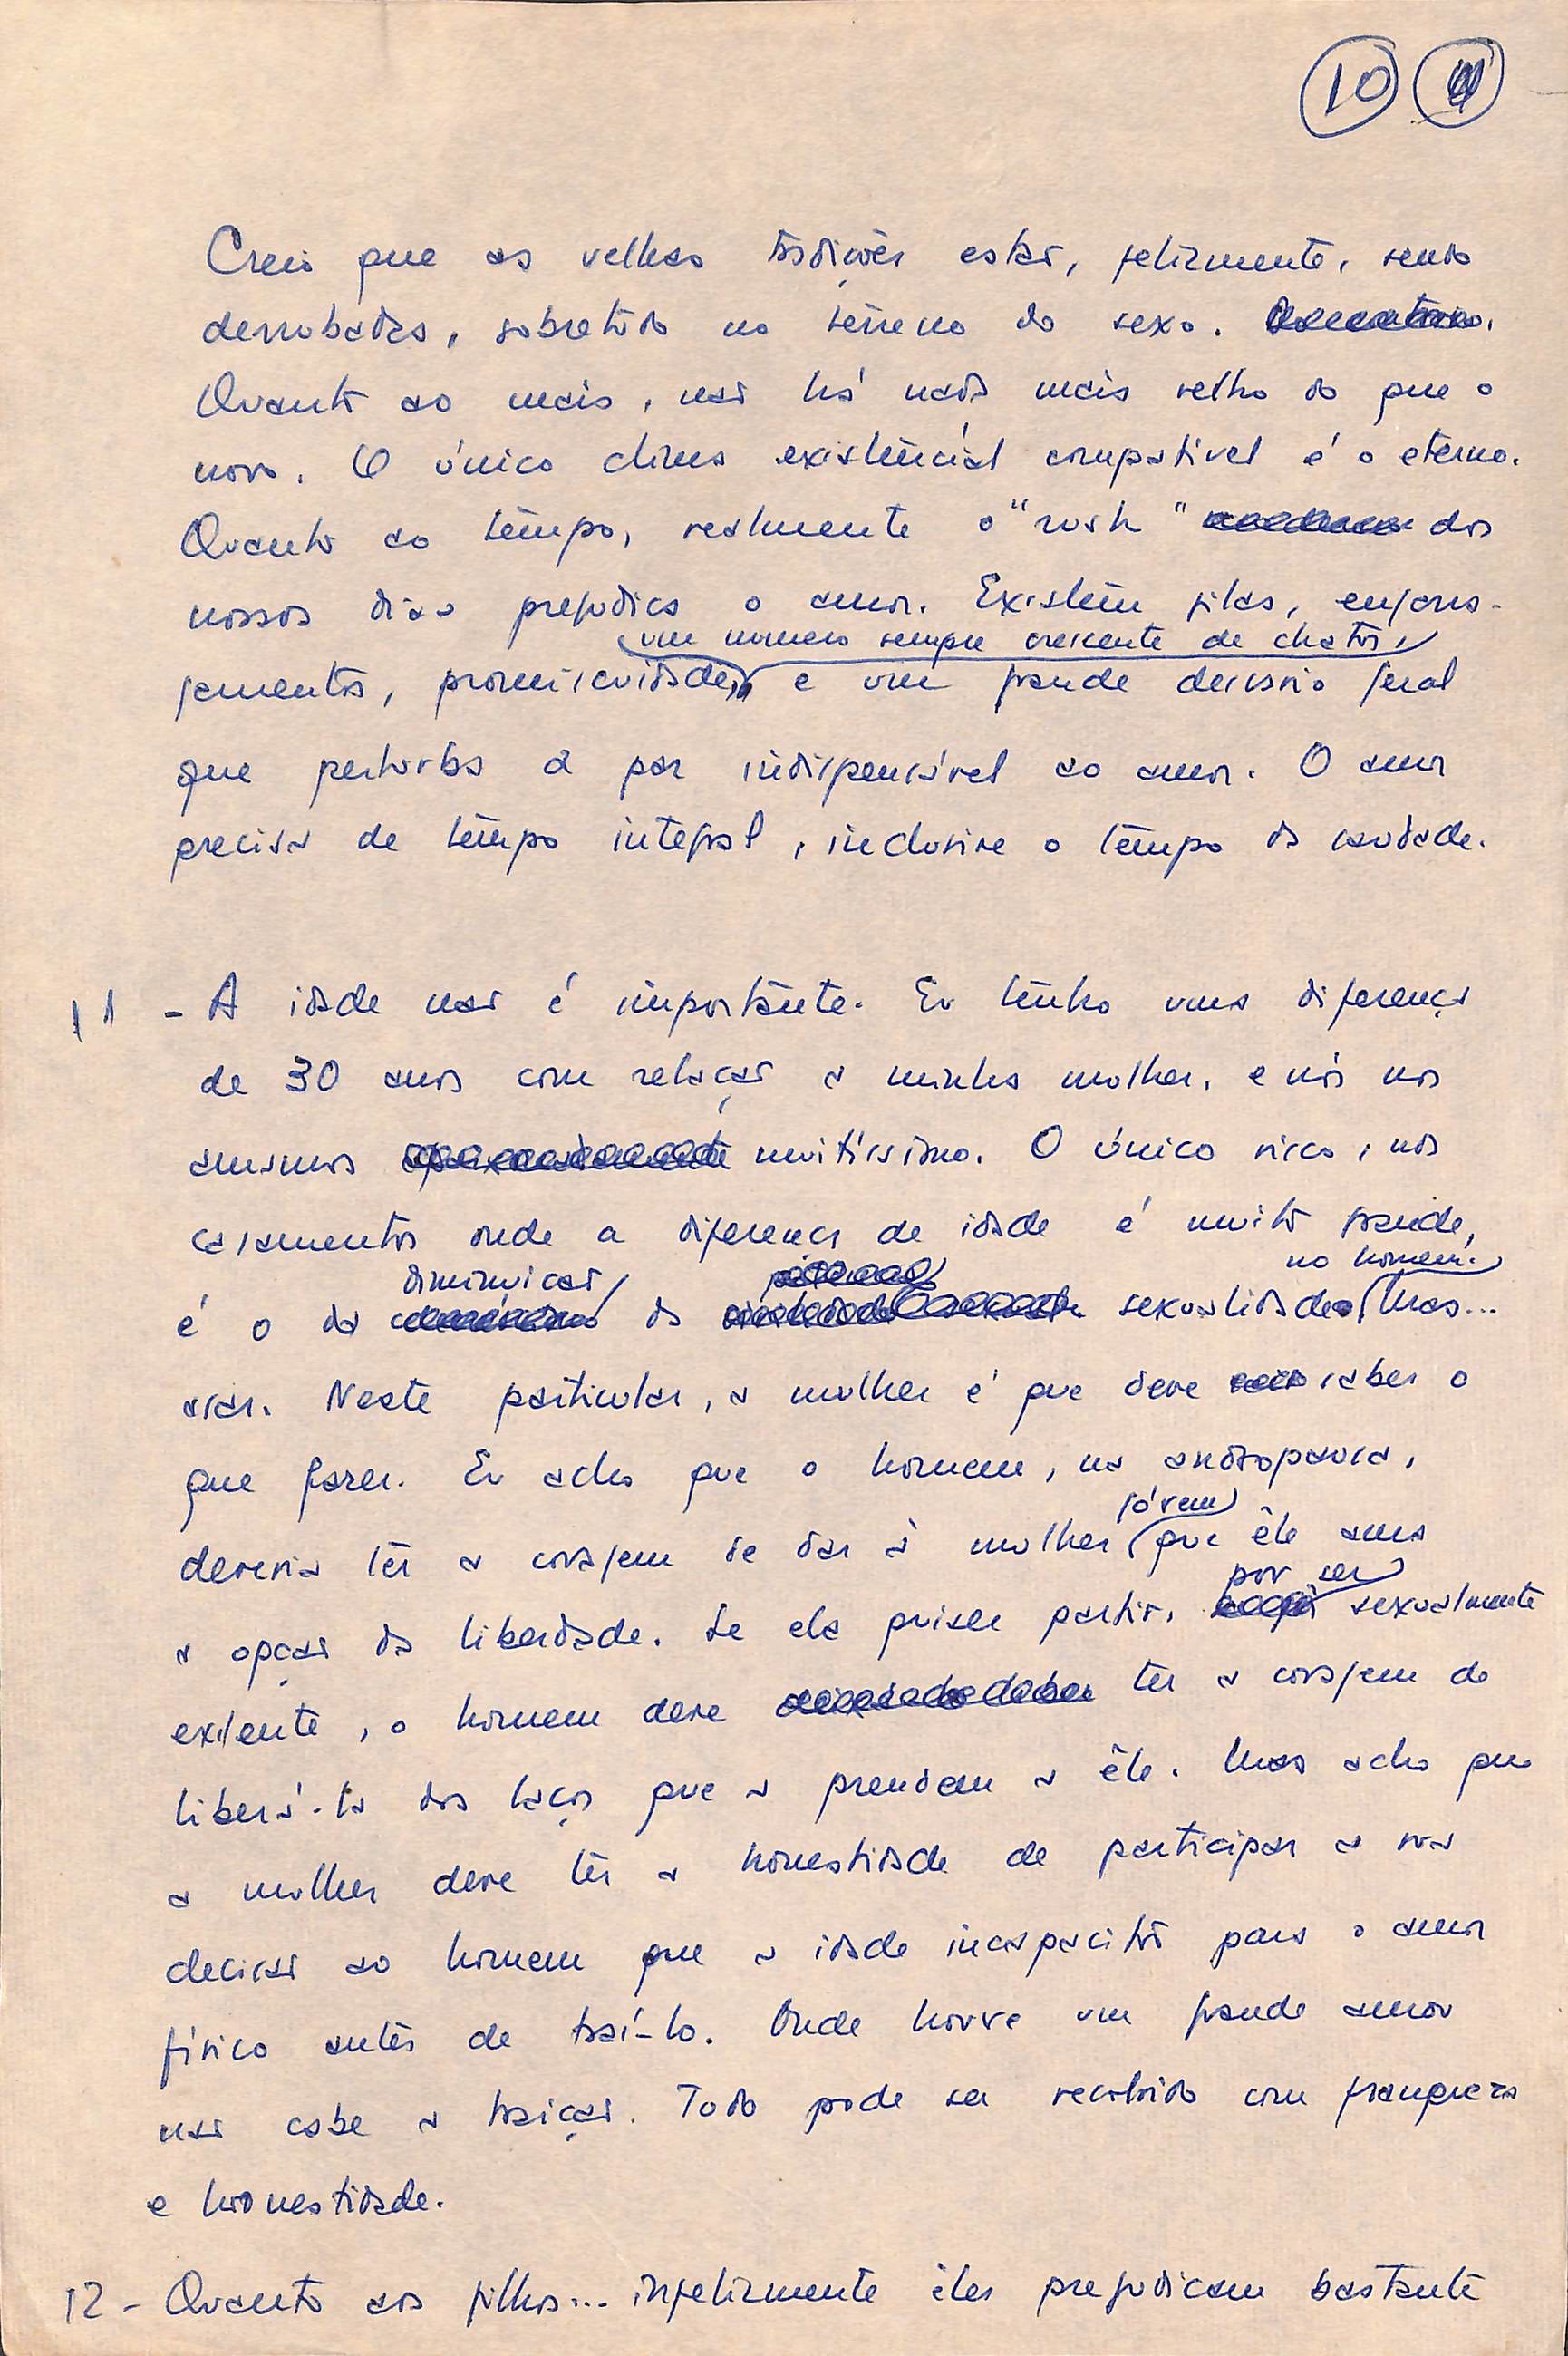 10
Creio que as velhas tradições estão, felizmente, sendo
derrubadas, sobretudo no terreno do sexo.
Quanto ao mais, não há nada mais velho do que o
novo. O único clima existêncial compatível é o eterno.
Quanto ao tempo, realmente o "rush" dos
nossos dias prejudica o amor. Existem filas, engarra-
um número sempre crescente de chatos,
famentos, promiscuidade, e um grande decisório geral
que perturba a paz indispensável ao amor. O amor
precisa de tempo integral, inclusive o tempo da saudade.
11 - A idade não é importante. Eu tenho uma diferença
de 30 anos com relação a minha mulher, e nós nos
amamos muitíssimo. O único risco, nos
casamentos onde a diferença de idade é muito grande,
diminuição no homem.
é o da da sexualidade Mas...
viar. Neste particular, a mulher é que deve saber o
que fazer. Eu acho que o homem, na andropausa,
jóvem
deveria ter a coragem de dar à mulher que êle ama
por ser
a opção da liberdade. Se ela quiser partir, sexualmente
exigente, o homem deve ter a coragem de
liberá-la dos laços que a prendem a êle. Mas acho que
a mulher deve ter a honestidade de participar a sua
decisão ao homem que a idade incapacitou para o amor
físico antes de traí-lo. Onde houve um grande amor
não cabe a traição. Tudo pode ser resolvido com franqueza
e honestidade.
12 - Quanto aos filhos... infelizmente êles prejudicam bastante